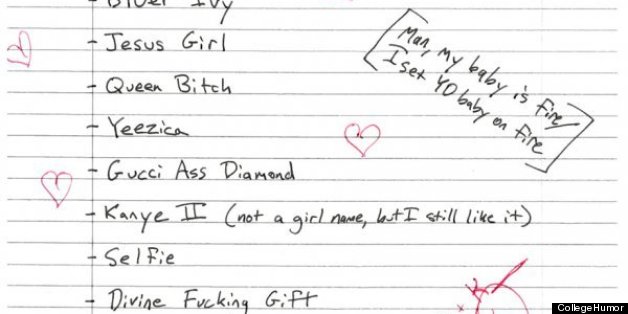 - Bluer Ivy
- Jesus Girl
Man, my baby is fire/
I set YO baby on fire
- Queen Bitch
- Yeezica
- Gucci Ass Diamond
- Kanye II (not a girl name, but I still like it)
- Selfie
- Divine Fucking Gift
CollegeHumor